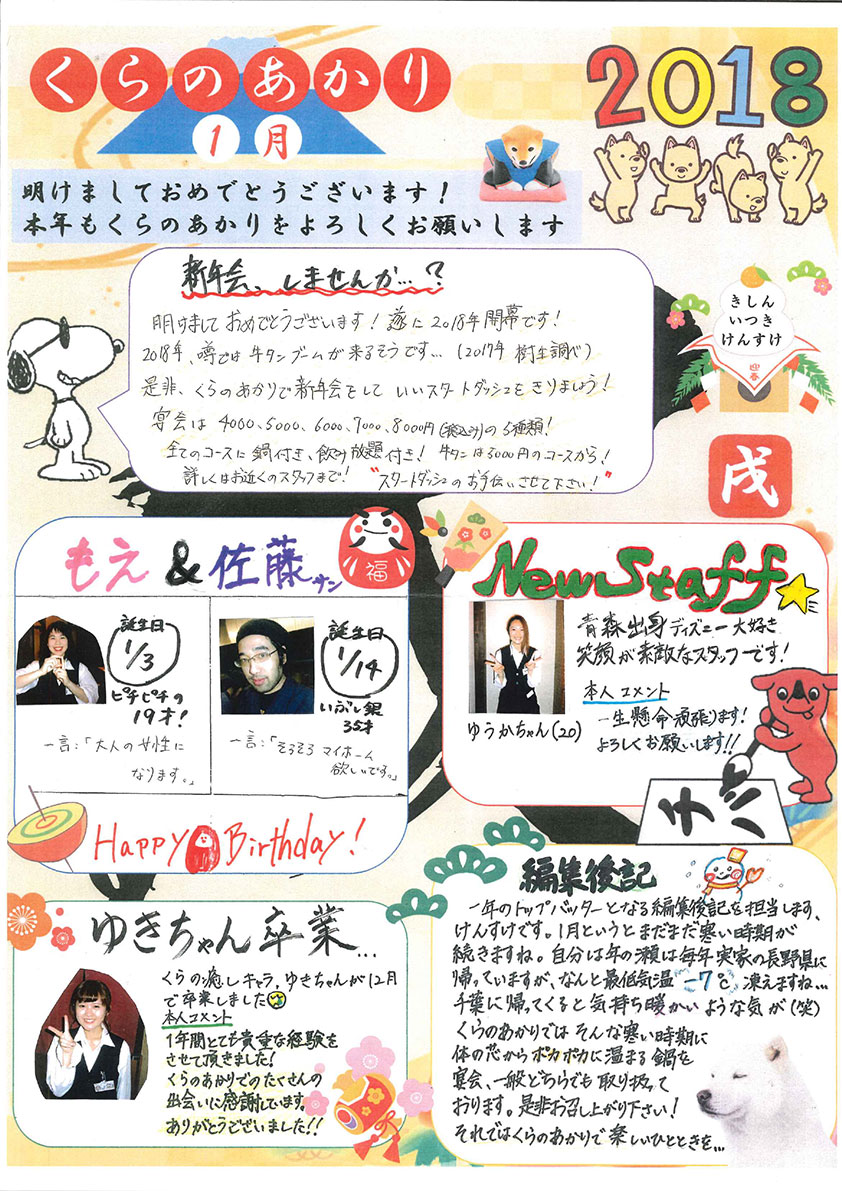 くらのあかり
1月
2018
明けましておめでとうございます！
本年もくらのあかりをよろしくお願いします
新年会、しませんか…？
明けましておめでとうございます！遂に2018年開幕です！
2018年、噂では牛タンブームが来るそうです…（2017年 樹生調べ）
是非、くらのあかりで新年会をして いいスタートダッシュをきりましょう！
宴会は 4000、5000、6000、7000、8000円(税込み)の 5種類！
全てのコースに鍋付き、飲み放題付き！ 牛タンは5000円のコースから！
詳しくはお近くのスタッフまで！ "スタートダッシュのお手伝いさせて下さい！"
きしん
いつき
けんすけ
迎春
戌
もえ & 佐藤サン
福
誕生日
1/3
ピチピチの
19才！
一言：「大人の女性に
なります。」
誕生日
1/14
いぶし銀
35才
一言：「そろそろ マイホーム
欲しいです。」
Happy Birthday!
New Staff
青森出身 ディズニー大好き
笑顔が素敵なスタッフです！
本人コメント
一生懸命頑張ります！
よろしくお願いします!!
ゆうかちゃん(20)
ゆき
ゆきちゃん卒業…
くらの癒しキャラ、ゆきちゃんが12月
で卒業しました
本人コメント
1年間とても貴重な経験を
させて頂きました！
くらのあかりでのたくさんの
出会いに感謝しています。
ありがとうございました!!
編集後記
一年のトップバッターとなる編集後記を担当します、
けんすけです。1月というとまだまだ寒い時期が
続きますね。自分は年の瀬は毎年実家の長野県に
帰っていますが、なんと最低気温 -7℃ 凍えますね…
千葉に帰ってくると気持ち暖かいような気が(笑)
くらのあかりでは そんな寒い時期に
体の芯からポカポカに温まる鍋を
宴会、一般どちらでも取り扱って
おります。是非お召し上がり下さい！
それではくらのあかりで楽しいひとときを…